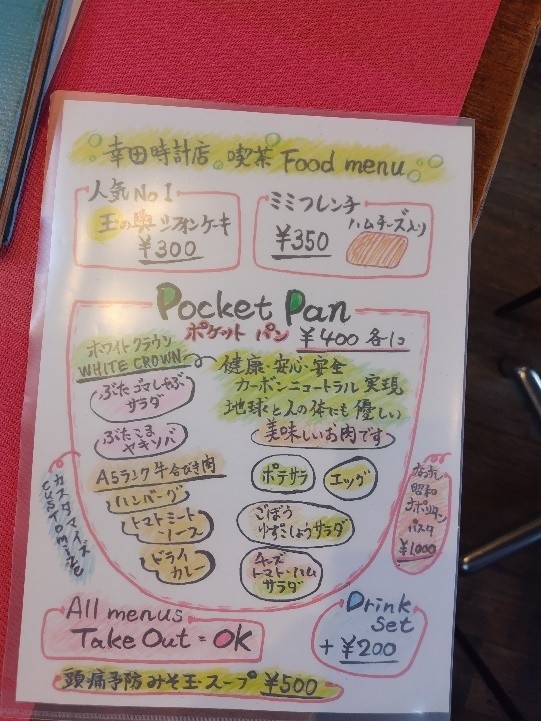 幸田時計店 喫茶 Food menu
人気 No 1
玉の輿シフォンケーキ
¥300
ミミフレンチ
ハムチーズ入り
¥350
Pocket Pan
ポケット パン ¥400 各1コ
ホワイトクラウン
WHITE CROWN
健康・安心・安全
カーボンニュートラル 実現
地球と人の体にも優しい
美味しいお肉です
ぶたゴマしゃぶ
サラダ
ぶたこま
ヤキソバ
A5ランク牛合びき肉
ハンバーグ
トマトミート
ソース
ドライ
カレー
ポテサラ
エッグ
ごぼう
ゆずこしょうサラダ
チーズ
トマト・ハム
サラダ
カスタマイズ
CUSTOMIZE
昭和
ナポリタン
パスタ
¥1000
All menus
Take Out = OK
Drink
Set
+ ¥200
頭痛予防みそ玉・スープ ¥500